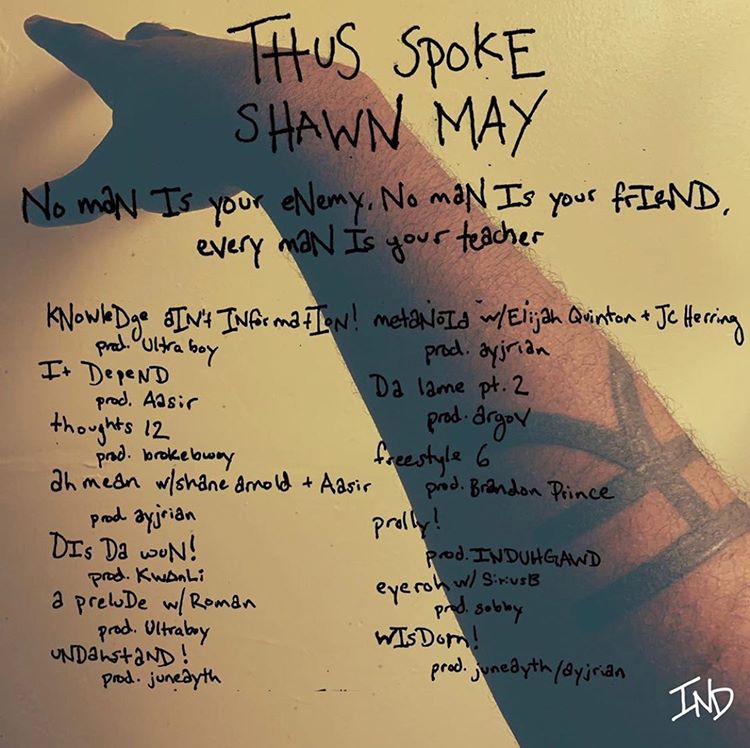 THUS SPOKE
SHAWN MAY
No maN Is your eNemy, No maN Is your frIeND,
every maN Is your teacher
KNowleDge aIN't INformatIoN!
prod. Ultra boy
It DepeND
prod. Aasir
thoughts 12
prod. brokebwoy
ah mean w/shane arnold + Aasir
prod ayjrian
DIs Da woN!
prod. KwanLi
a preluDe w/Roman
prod. Ultraboy
uNDahstaND!
prod. juneayth
metaNoIa w/Elijah Quinton + Jc Herring
prod. ayjrian
Da lame pt. 2
prod. argov
freestyle 6
prod. Brandon Prince
prolly!
prod. INDUHGAWD
eyeroh w/ SiriusB
prod. sobby
wIsDom!
prod. juneayth/ayjrian
IND